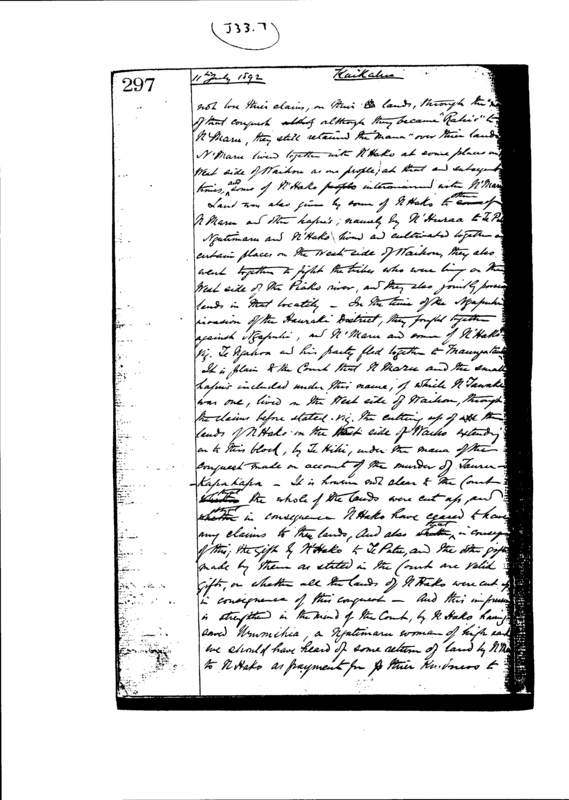 J33.7
297
11th July 1892 Kaikahu
not lose their claims, on their lands, through the
of that conquest although they became "Rahi's" to
N'Maru, they still retained the "mana" over their land
N'Maru lived together with N'Hako at some places on
West side of Waihou as one people, at that and subsequent
times, and some of N'Hako intermarried with N'Maru
Land was also given by some of N'Hako to
N'Maru and other hapu's, namely by N'Huraa to Te
Ngatimaru and N'Hako lived and cultivated together
certain places on the West side of Waihou, they also
went together to fight the tribes who were living on the
West side of the Piako river, and they also jointly
lands in that locality - In the time of the Ngapuhi
invasion of the Hauraki District, they fought together
against Ngapuhi, and N'Maru and some of N'Hako
viz. Te and his party fled together to
It is plain to the Court that N'Maru and the small
hapu's included under this name, of which N'Tawaki
was one, lived on the West side of Waihou, through
the claims before stated - viz. the cutting up of the
lands of N'Hako on the West side of extending
on to this block, by Te Hihi, under the mana of the
conquest made on account of the murder of Taurua-
Kapakapa - It is however not clear to the Court
that the whole of the lands were cut up, and
that in consequence N'Hako have ceased to have
any claims to these lands, and also that in
of this, the gifts by N'Hako to Te and the other gifts
made by them as stated in the Court are valid
gifts, or whether all the lands of N'Hako were cut up
in consequence of this conquest - And this
is strengthened in the mind of the Court, by N'Hako having
saved a Ngatimaru woman of high rank
we should have heard of some return of land by N'
to N'Hako as payment for their kindness to